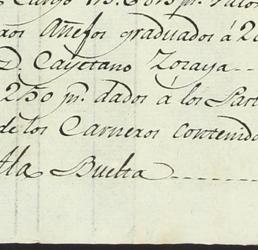 Cargo
ros Añejos graduados á 20
D. Cayetano Zoraya
250 pr. dados á los Past
de los Carneros contenido
Buelta